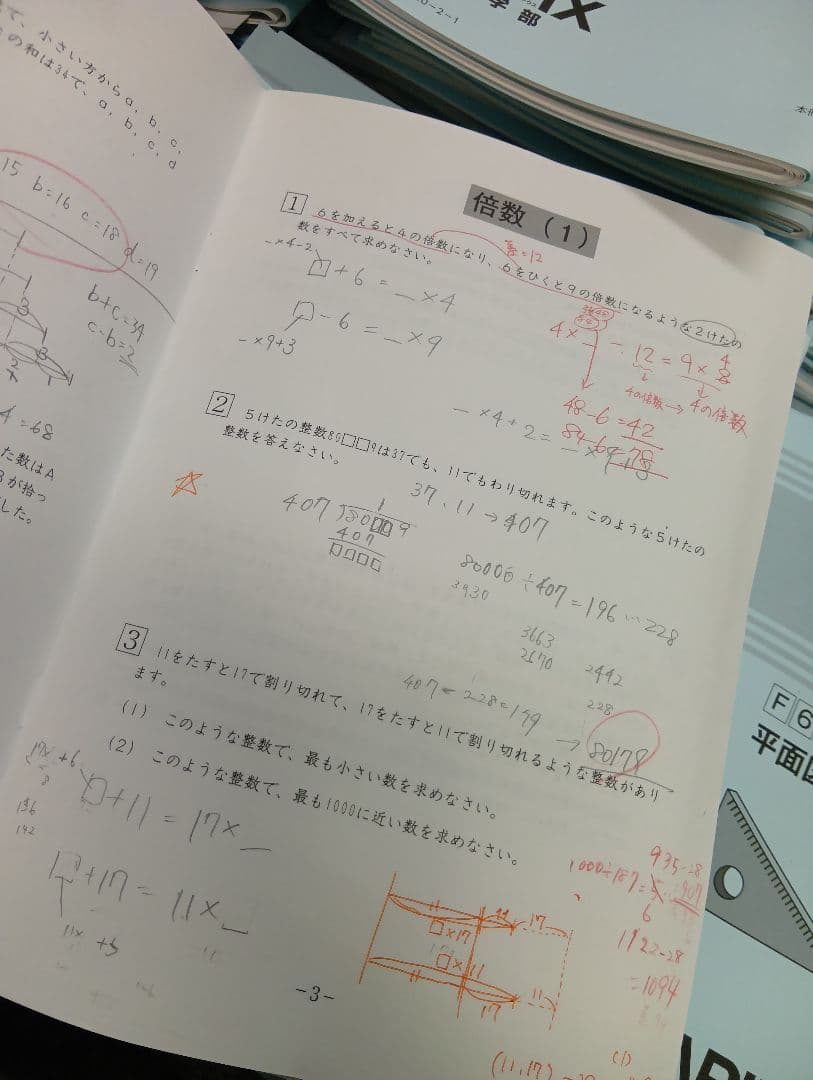 学部
0-2-1
て、小さい方からa, b, c,
の和は34で、a, b, c, d
15 b=16 c=18 d=19
b+c=34
c-b=2
=68
た数はA
が拾っ
した。
倍数(1)
1 6を加えると4の倍数になり、6をひくと9の倍数になるような2けたの
数をすべて求めなさい。
差=12
_×4-2
□+6=_×4
□-6=_×9
_×9+3
4×_-12=9×
4の倍数→4の倍数
48-6=42
84-6=78
_×4+2=_×9+8
2 5けたの整数80□□9は37でも、11でもわり切れます。このような5けたの
整数を答えなさい。
37、11→407
1
407 80□□9
407
□□□□
80006÷407=196…228
3930
3663
2670
2442
228
407-228=179
→80179
3 11をたすと17で割り切れて、17をたすと11で割り切れるような整数があり
ます。
(1) このような整数で、最も小さい数を求めなさい。
(2) このような整数で、最も1000に近い数を求めなさい。
17×+6
8
□+11=17×_
□+17=11×_
11×+5
11
935-28
1000÷187=5
907
6
1122-28
=1094
11
17
□×17
□×11
11
11
17
-3-
(1)
(11,17)
F6
平面図